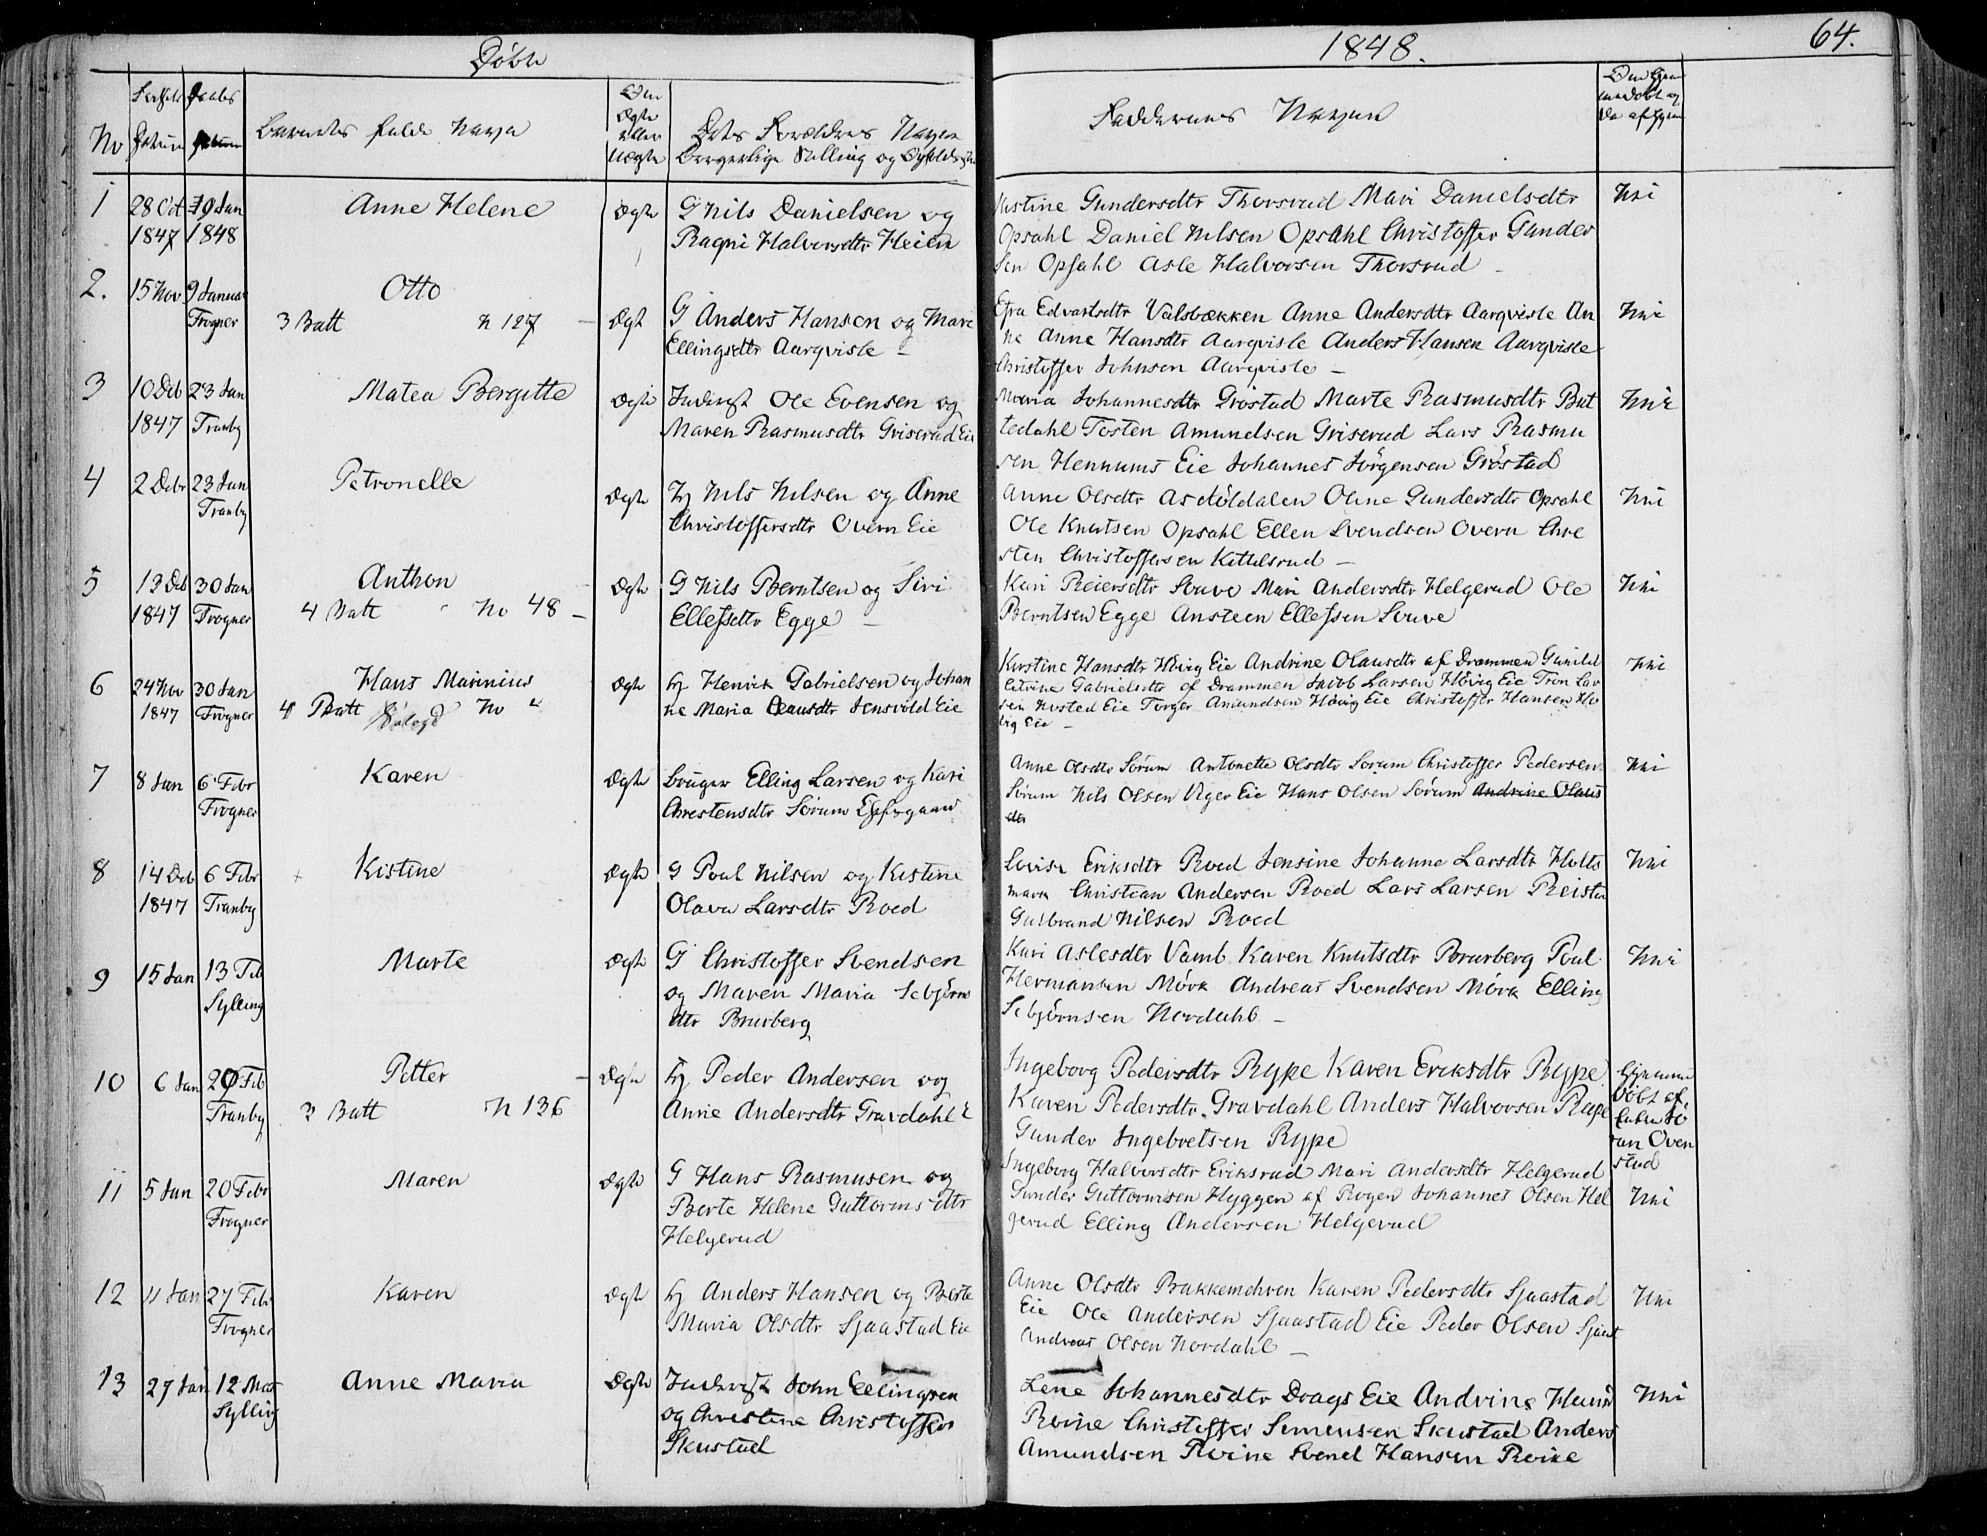 Døbte
1848.
64.
No
Barnets fulde Navn
Ægte
eller
Uægte
Dets Forældres Navne
Borgerlige Stilling og
Faddernes Navne
1 28 Oct 1847 Jan 1848 Anne Helene Ægte G Nils Danielsen og
Ragni Halvorsdtr Heien
Gundersdtr Thorsrud Mari Danielsdtr Nei
Opsahl Daniel Nilsen Opsahl Christoffer Gunder
sen Opsahl Asle Halvorsen Thorsrud
2. 15 Nov 9 Januar Trogner Otto
3 Batt N 127 Ægt G Anders Hansen og Mare
Ellingsdtr Aarqvisle
Edvartsdtr Valsbækken Anne Andersdtr Aarqvisle An Nei
ne Anne Hansdtr Aarqvisle Anders Hansen Aarqvisle
Christoffer Johnsen Aarqvisle
3 10 Deb 1847 23 Jan Tranby Matea Bergitte Ægte Inderst Ole Evensen og
Maren Rasmusdtr Griserud Eie
Maria Johannesdtr Gröstad Marte Rasmusdtr But Nei
tedahl Tosten Amundsen Griserud Lars Rasmu
sen Hennums Eie Johannes Jörgensen Gröstad
4 2 Debr 23 Jan Tranby Petronelle Ægte Hj Nils Nilsen og Anne
Christoffersdtr Overn Eie
Anne Olsdtr Asdöldalen Oline Gundersdtr Opsahl Nei
Ole Knutsen Opsahl Ellen Svendsen Overn Chre
sten Christoffersen Kittelsrud
5 13 Deb 1847 30 Jan Trogner Anthon
4 Batt No 48 Ægte G Nils Berntsen og Siri
Ellefsdtr Egge
Kari Reiersdtr Sauve Mari Andersdtr Helgerud Ole Nei
Berntsen Egge Ansteen Ellefsen Sauve
6 24 Nov 1847 30 Jan Trogner Hans Marinius
4 Batt No " Ægte Hj Henrik Gabrielsen og Johan
ne Maria Clausdtr Jensvold Eie
Kirstine Hansdtr Hövig Eie Andrine Olausdtr af Drammen Gunild Nei
Catrine Gabrielsdtr af Drammen Jacob Larsen Hövig Eie Tron Lar
sen Nosted Eie Torger Amundsen Hövig Eie Christoffer Hansen Hö
vig Eie
7 8 Jan 6 Febr Trogner Karen Ægte Bruger Elling Larsen og Kari
Chrestensdtr Sörum
Anne Olsdtr Sörum Antonette Olsdtr Sörum Christoffer Pedersen Nei
Sörum Nils Olsen Viger Eie Hans Olsen Sörum Andrine Olaus
dtr
8 14 Deb 1847 6 Febr Tranby Kistine Ægte G Poul Nilsen og Kistine
Olava Larsdtr Roed
Lovise Eriksdtr Roed Jensine Johanne Larsdtr Holts Nei
mark Christian Andersen Roed Lars Larsen Reisten
Gulbrand Nilsen Roed
9 15 Jan 13 Feb Sylling Marte Ægte G Christoffer Svendsen
og Maren Maria Sebjörns
dtr Brurberg
Kari Aslesdtr Vamb Karen Knutsdtr Brurberg Poul Nei
Hermansen Mörk Andreas Svendsen Mörk Elling
Sebjörnsen Nordahl
10 6 Jan 20 Feb Tranby Petter
3 Batt N 136 Ægte Hj Peder Andersen og
Anne Andersdtr Gravdahl E
Ingeborg Pedersdtr Rype Karen Eriksdtr Rype Hjemme
Karen Pedersdtr Gravdahl Anders Halvorsen Rype döbt af
Gunder Ingebretsen Rype
11 5 Jan 20 Febr Trogner Maren Ægte G Hans Rasmusen og
Berte Helene Guttorms dtr
Helgerud
Ingeborg Halvorsdtr Eriksrud Mari Andersdtr Helgerud
Gunder Guttormsen Hyggen af Rögen Johannes Olsen Hel Nei
gerud Elling Andersen Helgerud
12 11 Jan 27 Febr Trogner Karen Ægte Hj Anders Hansen og Berte
Maria Olsdtr Sjaastad Eie
Anne Olsdtr Bakkemdhren Karen Pedersdtr Sjaastad Nei
Eie Ole Andersen Sjaastad Eie Peder Olsen Sjaast
Andreas Olsen Nordahl
13 27 Jan 12 Mart Sylling Anne Maria Ægte Inderst John Ellingsen
og Christine Christoffer
Skustad
Lene Johannesdtr Drags Eie Andrine Hans Nei
Roine Christoffer Simensen Skustad Anders
Amundsen Roine Svend Hansen Roine